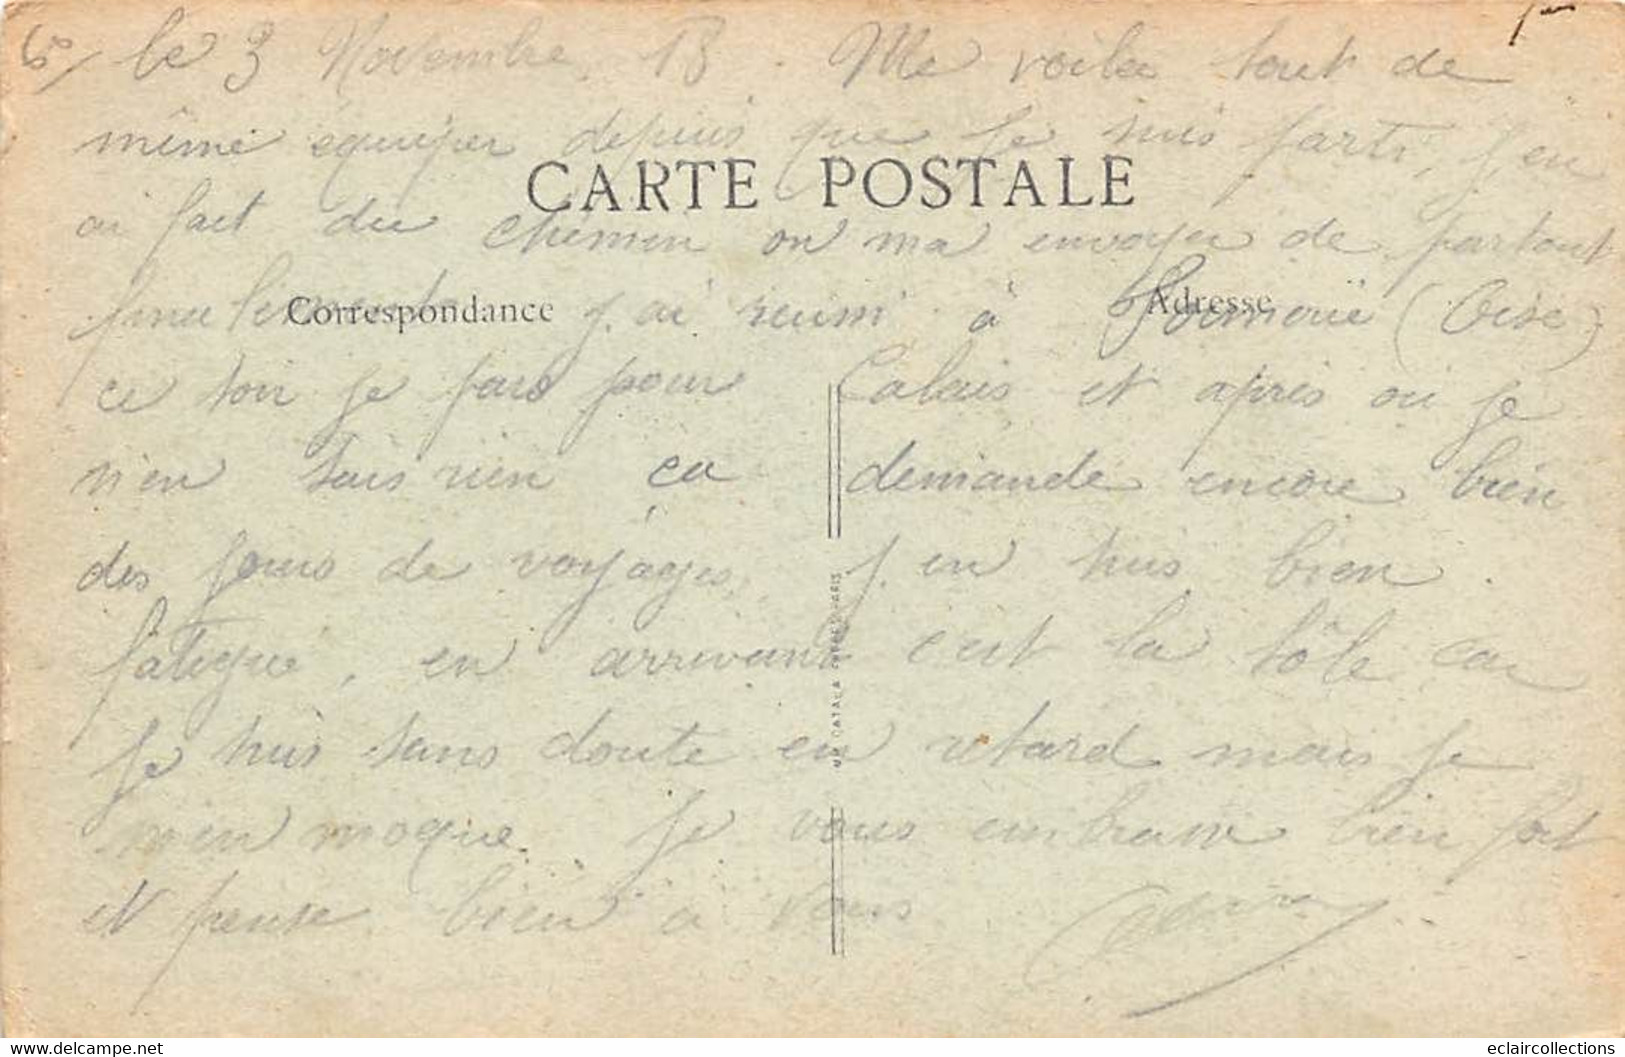 le 3 Novembre 18. Me voilà tout de
même équiper depuis que je suis parti, j'en
ai fait du chemin on ma envoyer de partout
CARTE POSTALE
finalement j'ai à Formerie (Oise)
Correspondance
Adresse
ce soir je pars pour Calais et après où je
n'en sais rien ça demande encore bien
des jours de voyages, j'en suis bien
fatigué, en arrivant c'est la tôle car
je suis sans doute en retard mais je
m'en moque. Je vous embrasse bien fort
et pense bien a vous
delcampe.net
eclaircollections